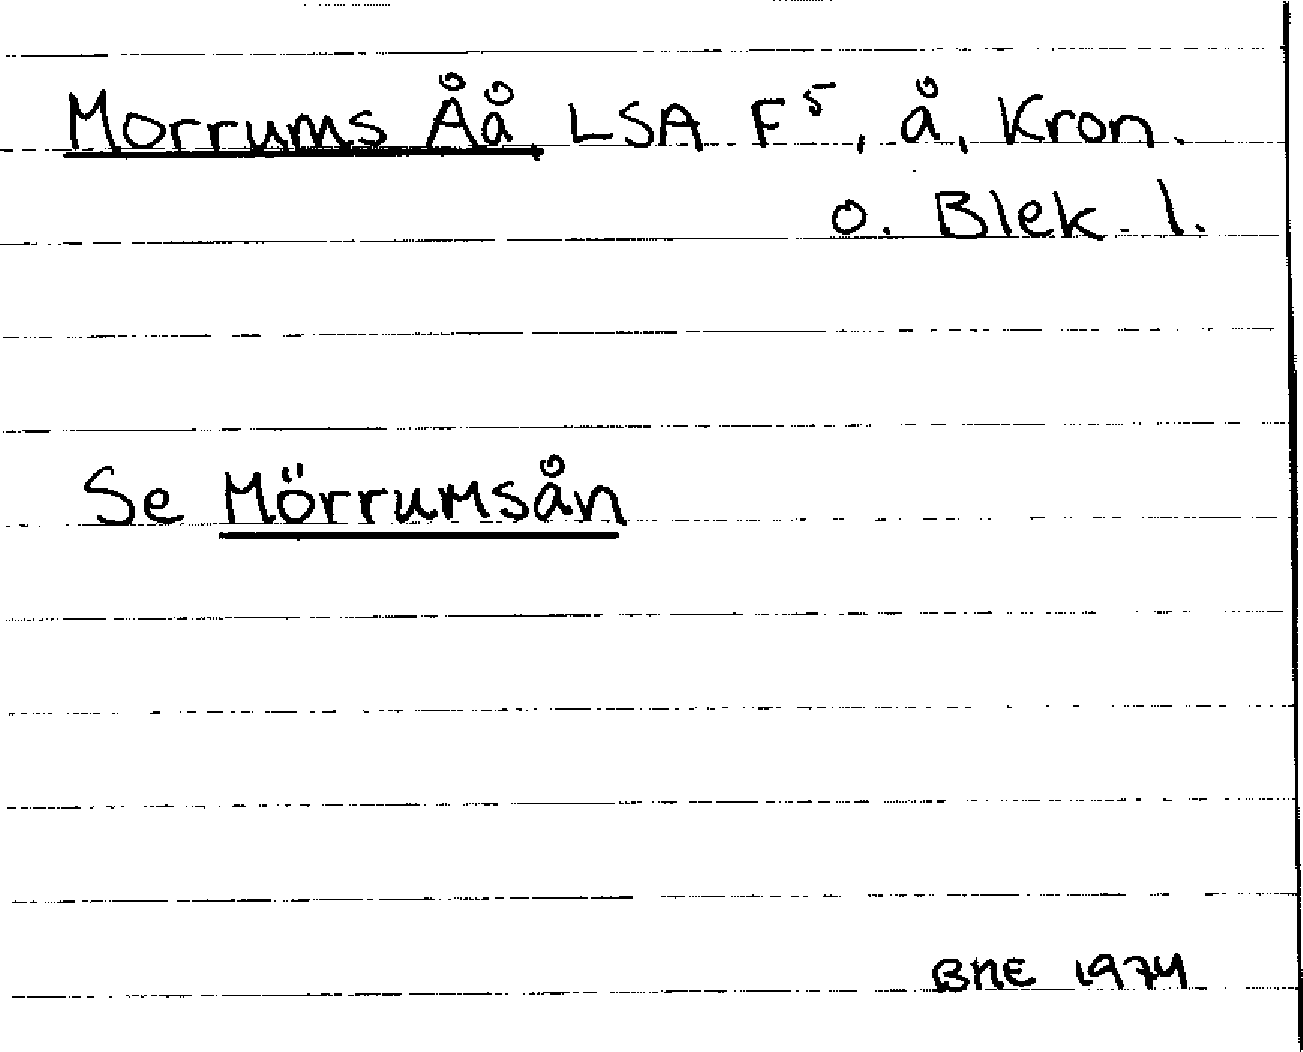 Morrums Åå LSA F⁵, å, Kron.
o. Blek. l.
Se Mörrumsån
BME 1974